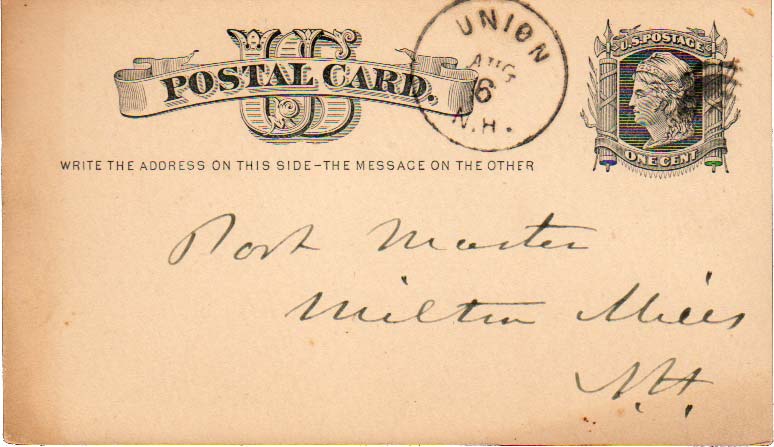 US
POSTAL CARD.
UNION
AUG
6
N.H.
U.S. POSTAGE
ONE CENT
WRITE THE ADDRESS ON THIS SIDE–THE MESSAGE ON THE OTHER
Post Master
Milton Mills
N.H.